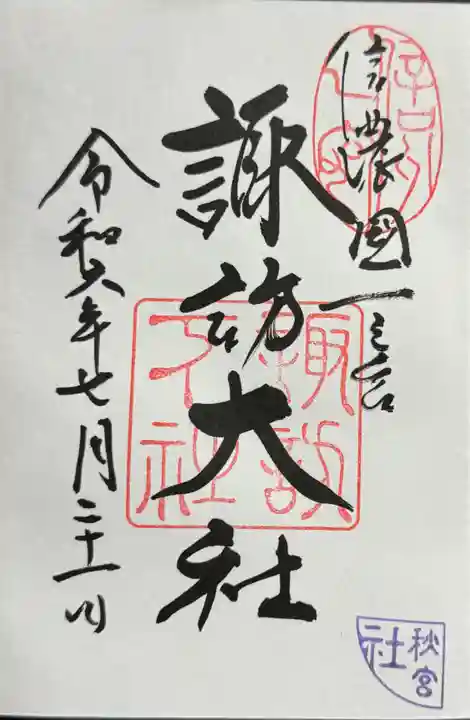 信濃國一之宮
諏訪大社
令和六年七月二十一日
諏訪大社
秋宮
社